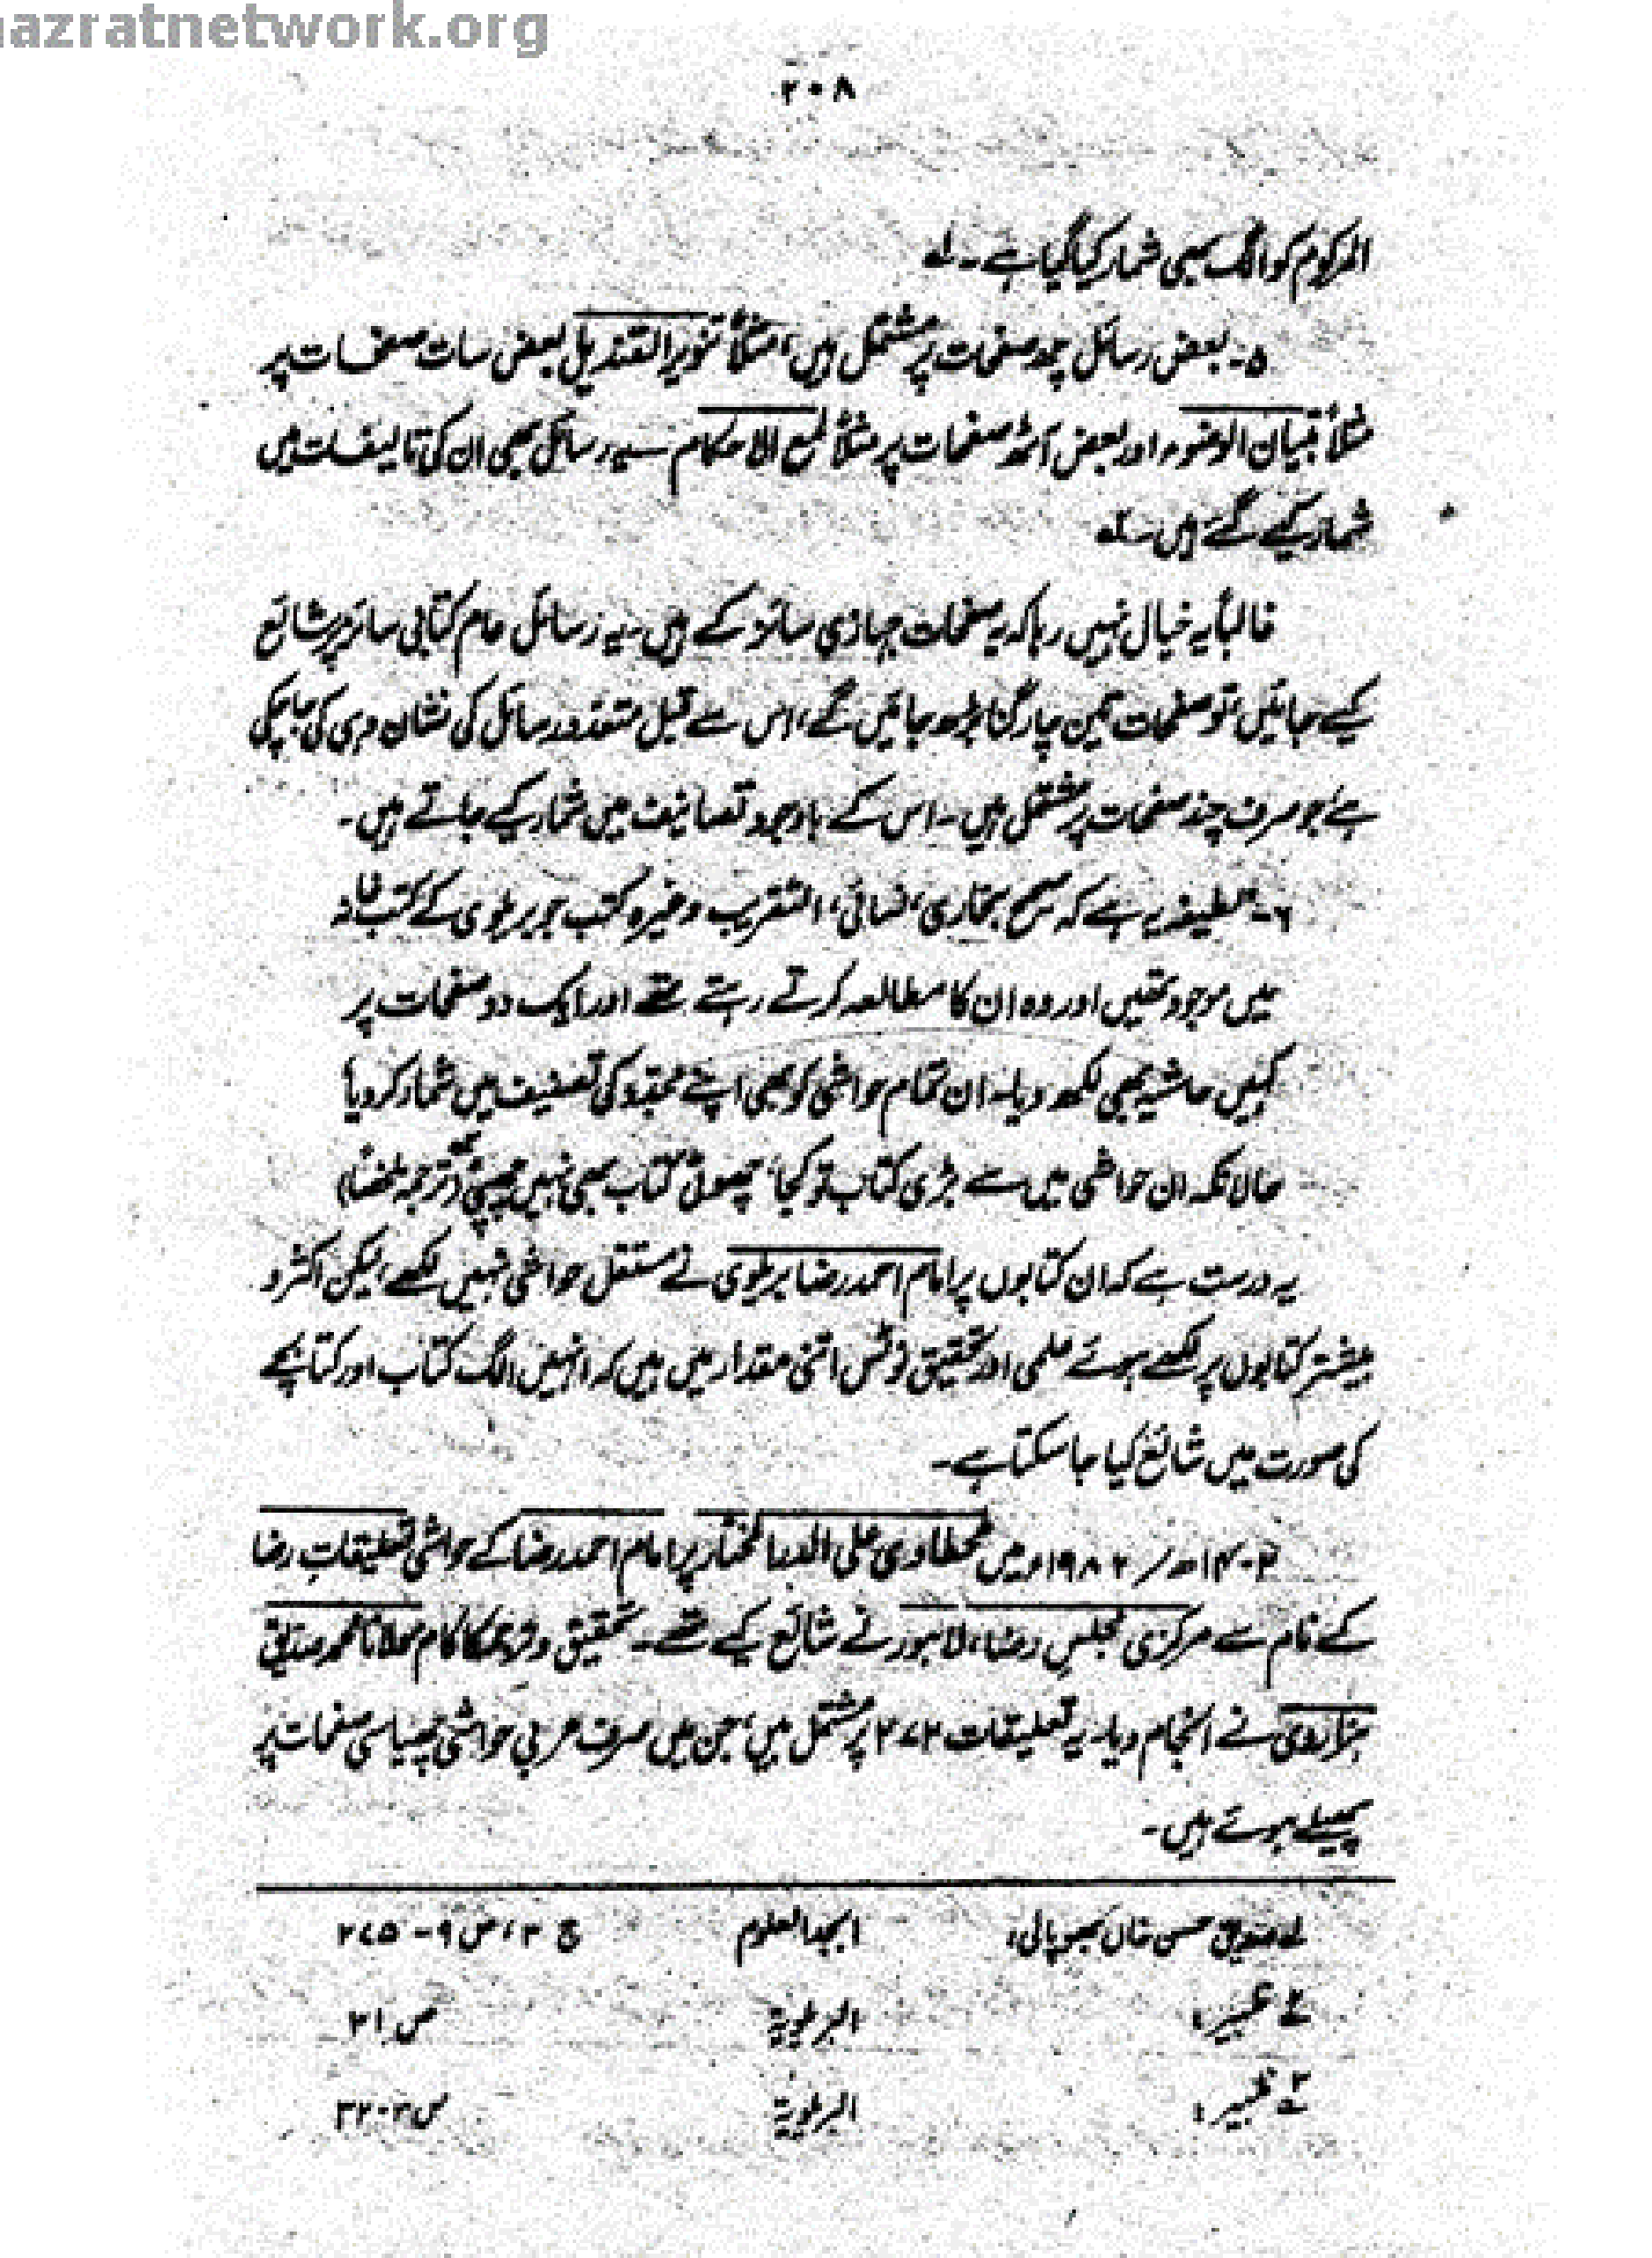 hazratnetwork.org
۲۰۸
المرکوم کو الگ بھی شمار کیا گیا ہے۔ لے
۵۔ بعض رسائل چھ صفحات پر مشتمل ہیں، مثلاً تنویر القندیل بعض سات صفحات پر
مثلاً تبیان الوضوء اور بعض آٹھ صفحات پر مثلاً لمع الاحکام یہ رسائل بھی ان کی تالیفات میں
شمار کیے گئے ہیں۔ ۲ے
غالباً یہ خیال نہیں رہا کہ یہ صفحات جہازی سائز کے ہیں یہ رسائل عام کتابی سائز پر شائع
کیے جائیں تو صفحات تین چار گنا بڑھ جائیں گے، اس سے قبل متعدد رسائل کی نشان دہی کی جا چکی
ہے جو صرف چند صفحات پر مشتمل ہیں۔ اس کے باوجود تصانیف میں شمار کیے جاتے ہیں۔
۶۔ لطیفہ یہ ہے کہ صحیح بخاری، نسائی، التقریب وغیرہ کتب جو بریلوی کے کتب خانہ
میں موجود تھیں اور وہ ان کا مطالعہ کرتے رہتے تھے اور ایک دو صفحات پر
کہیں حاشیہ بھی لکھ دیا۔ ان تمام حواشی کو بھی اپنے مجدد کی تصنیف میں شمار کر دیا
حالانکہ ان حواشی میں سے بڑی کتاب تو کجا، چھوٹی کتاب بھی نہیں چھپی ۳ے (ترجمہ ملخصاً)
یہ درست ہے کہ ان کتابوں پر امام احمد رضا بریلوی نے مستقل حواشی نہیں لکھے، لیکن اکثر و
بیشتر کتابوں پر لکھے ہوئے علمی اور تحقیقی نوٹس اتنی مقدار میں ہیں کہ انہیں الگ کتاب اور کتابچے
کی صورت میں شائع کیا جا سکتا ہے۔
۱۴۰۲ھ / ۱۹۸۲ء میں طحطاوی علی الدر المختار پر امام احمد رضا کے حواشی تعلیقات رضا
کے نام سے مرکزی مجلس رضا، لاہور نے شائع کیے تھے۔ تحقیق و کا کام مولانا محمد صدیق
ہزاروی نے انجام دیا۔ یہ تعلیقات ۲۷۲ پر مشتمل ہیں، جن میں صرف عربی حواشی چھیاسی صفحات پر
پھیلے ہوئے ہیں۔
لے صدیق حسن خاں بھوپالی: ابجد العلوم ج ۳، ص ۹ - ۲۷۵
۲ے ظہیر: البریلویۃ ص ۳۱
۳ے ظہیر: البریلویۃ ص